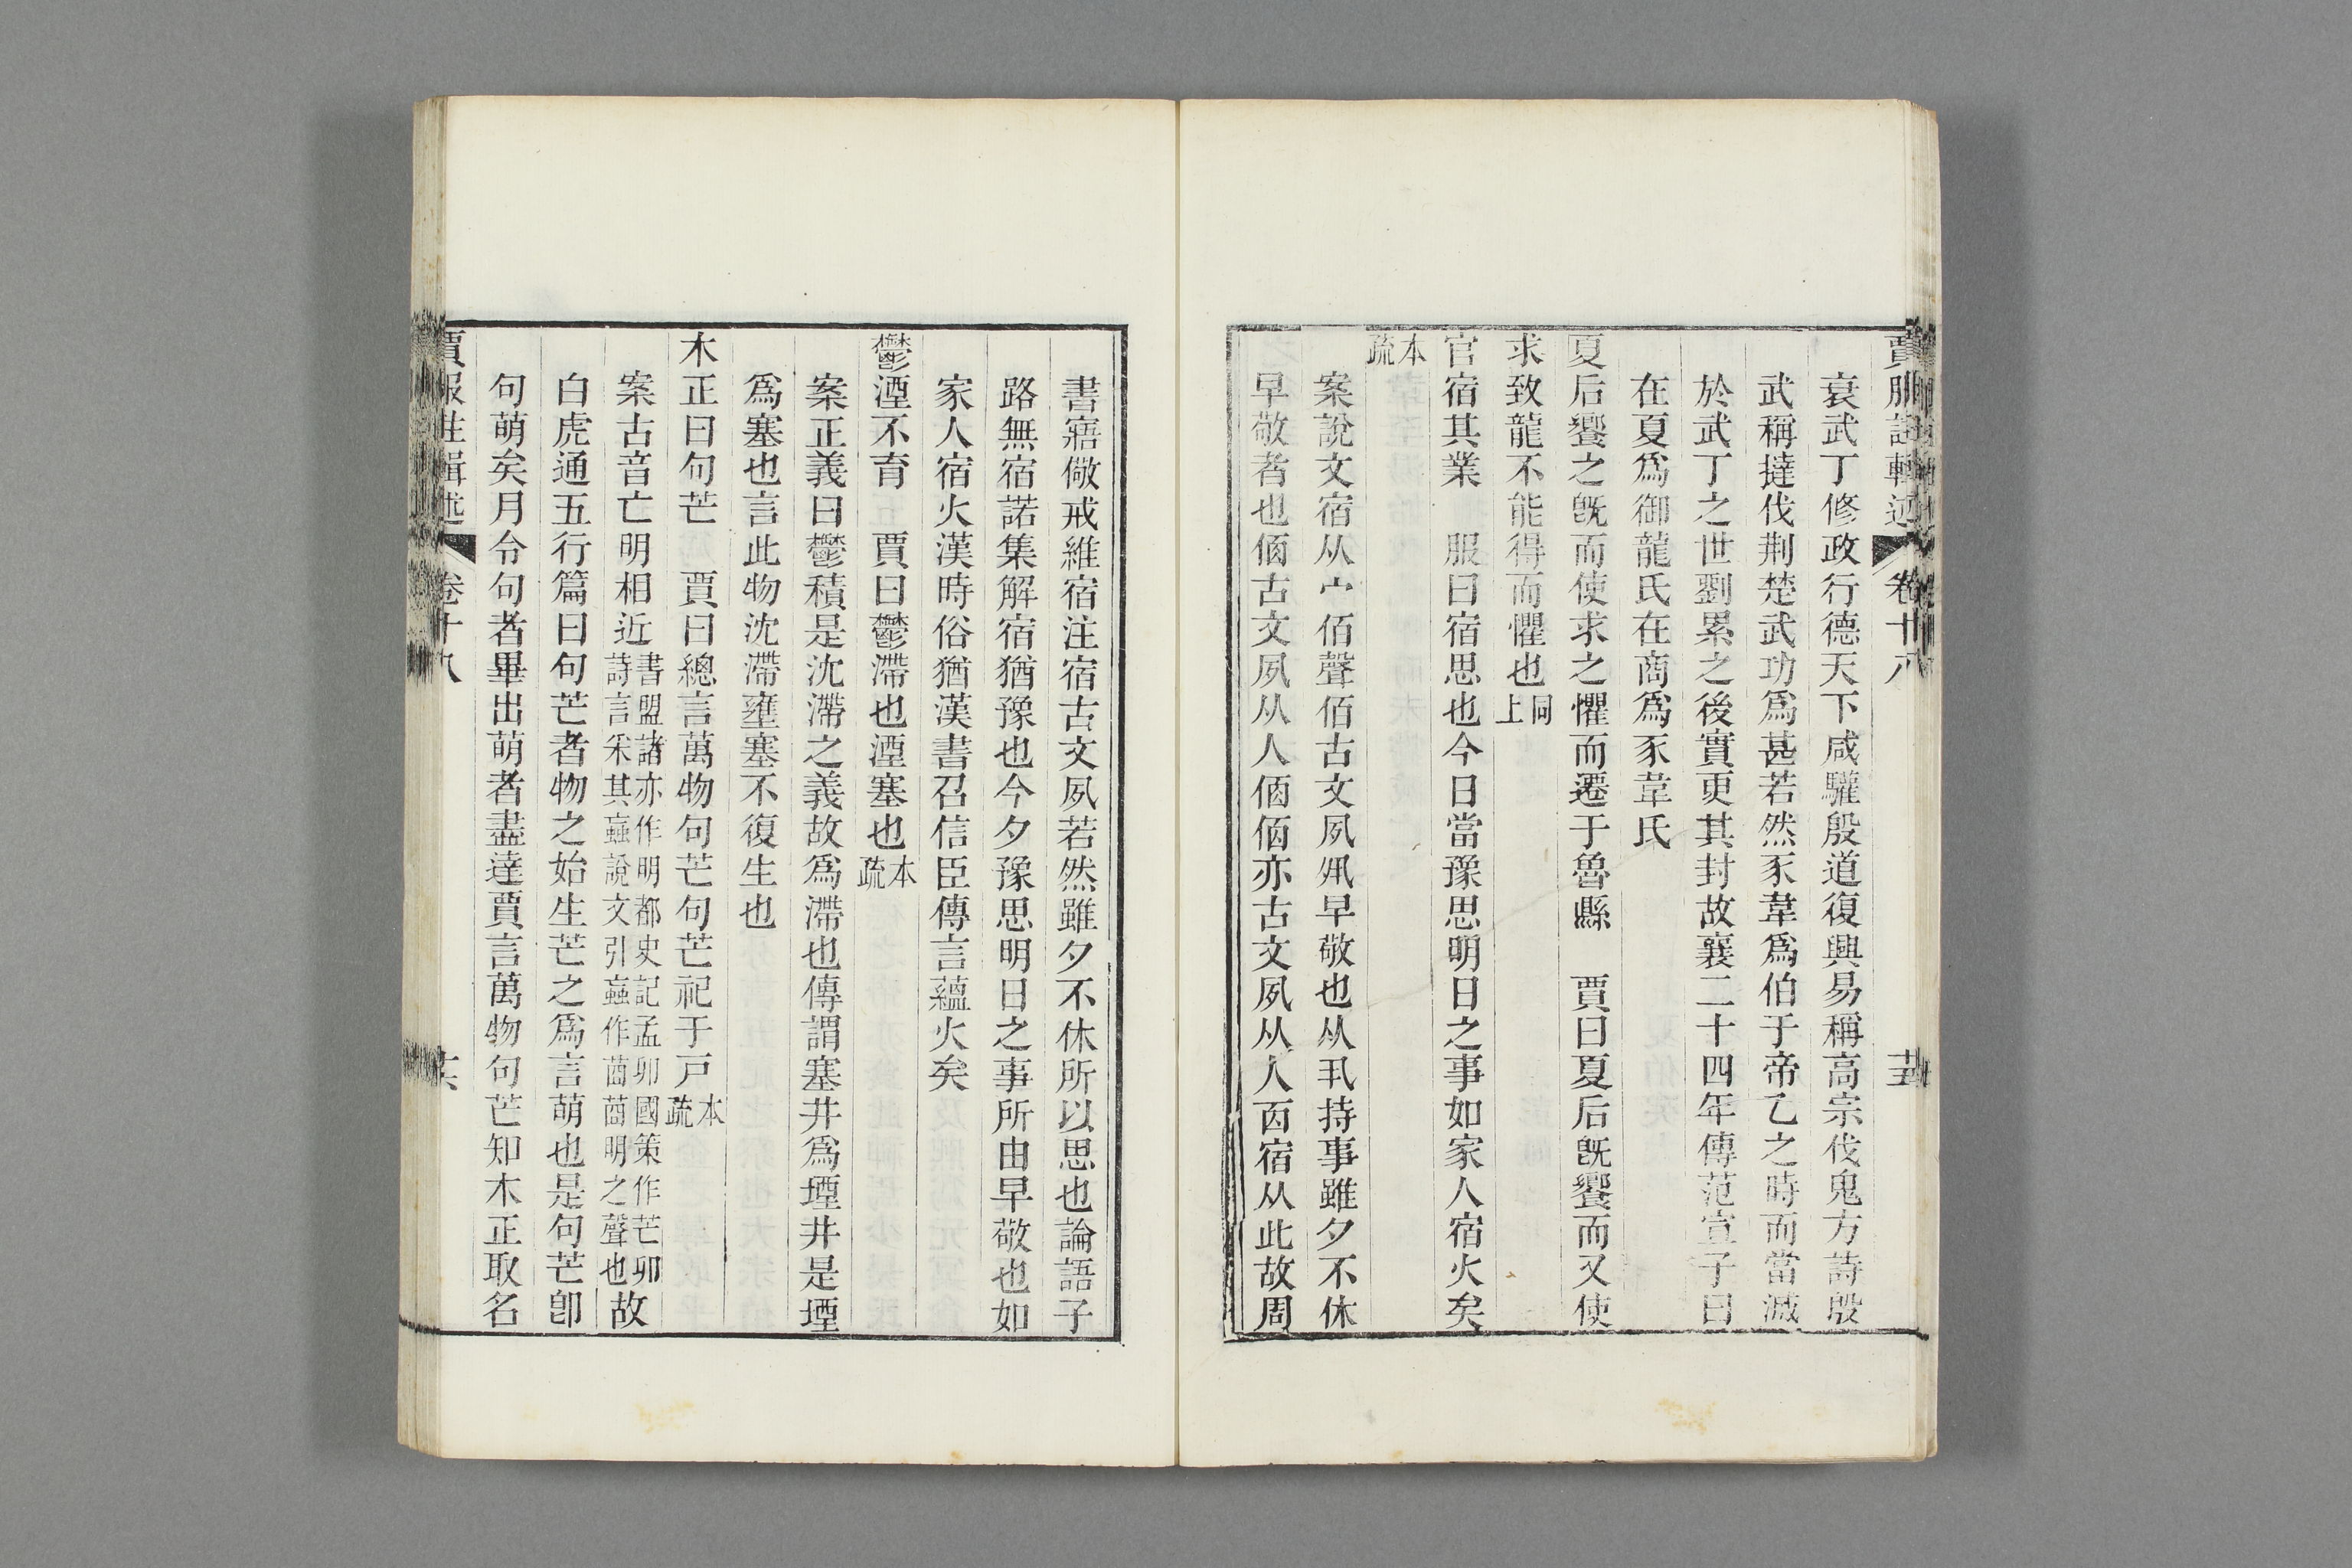 賈服註輯述 卷十八
衰武丁修政行德天下咸驩殷道復興易稱高宗伐鬼方詩殷
武稱撻伐荆楚武功爲甚若然豕韋爲伯于帝乙之時而當滅
於武丁之世劉累之後實更其封故襄二十四年傳范宣子曰
在夏爲御龍氏在商爲豕韋氏
夏后饗之旣而使求之懼而遷于魯縣 賈曰夏后旣饗而又使
求致龍不能得而懼也同上
官宿其業 服曰宿思也今日當豫思明日之事如家人宿火矣
本疏
案說文宿从宀佰聲佰古文夙夙早敬也从丮持事雖夕不休
早敬者也㐁古文夙从人㐁㐁亦古文夙从人西宿从此故周
書寤儆戒維宿注宿古文夙若然雖夕不休所以思也論語子
路無宿諾集解宿猶豫也今夕豫思明日之事所由早敬也如
家人宿火漢時俗猶漢書召信臣傳言蘊火矣
鬱湮不育 賈曰鬱滯也湮塞也本疏
案正義曰鬱積是沈滯之義故爲滯也傳謂塞井爲堙井是堙
爲塞也言此物沈滯壅塞不復生也
木正曰句芒 賈曰總言萬物句芒句芒祀于戸本疏
案古音亡明相近書盟諸亦作明都史記孟卯國策作芒卯詩言釆其蝱說文引蝱作莔莔明之聲也故
白虎通五行篇曰句芒者物之始生芒之爲言萌也是句芒卽
句萌矣月令句者畢出萌者盡達賈言萬物句芒知木正取名
賈服注輯述 卷十八